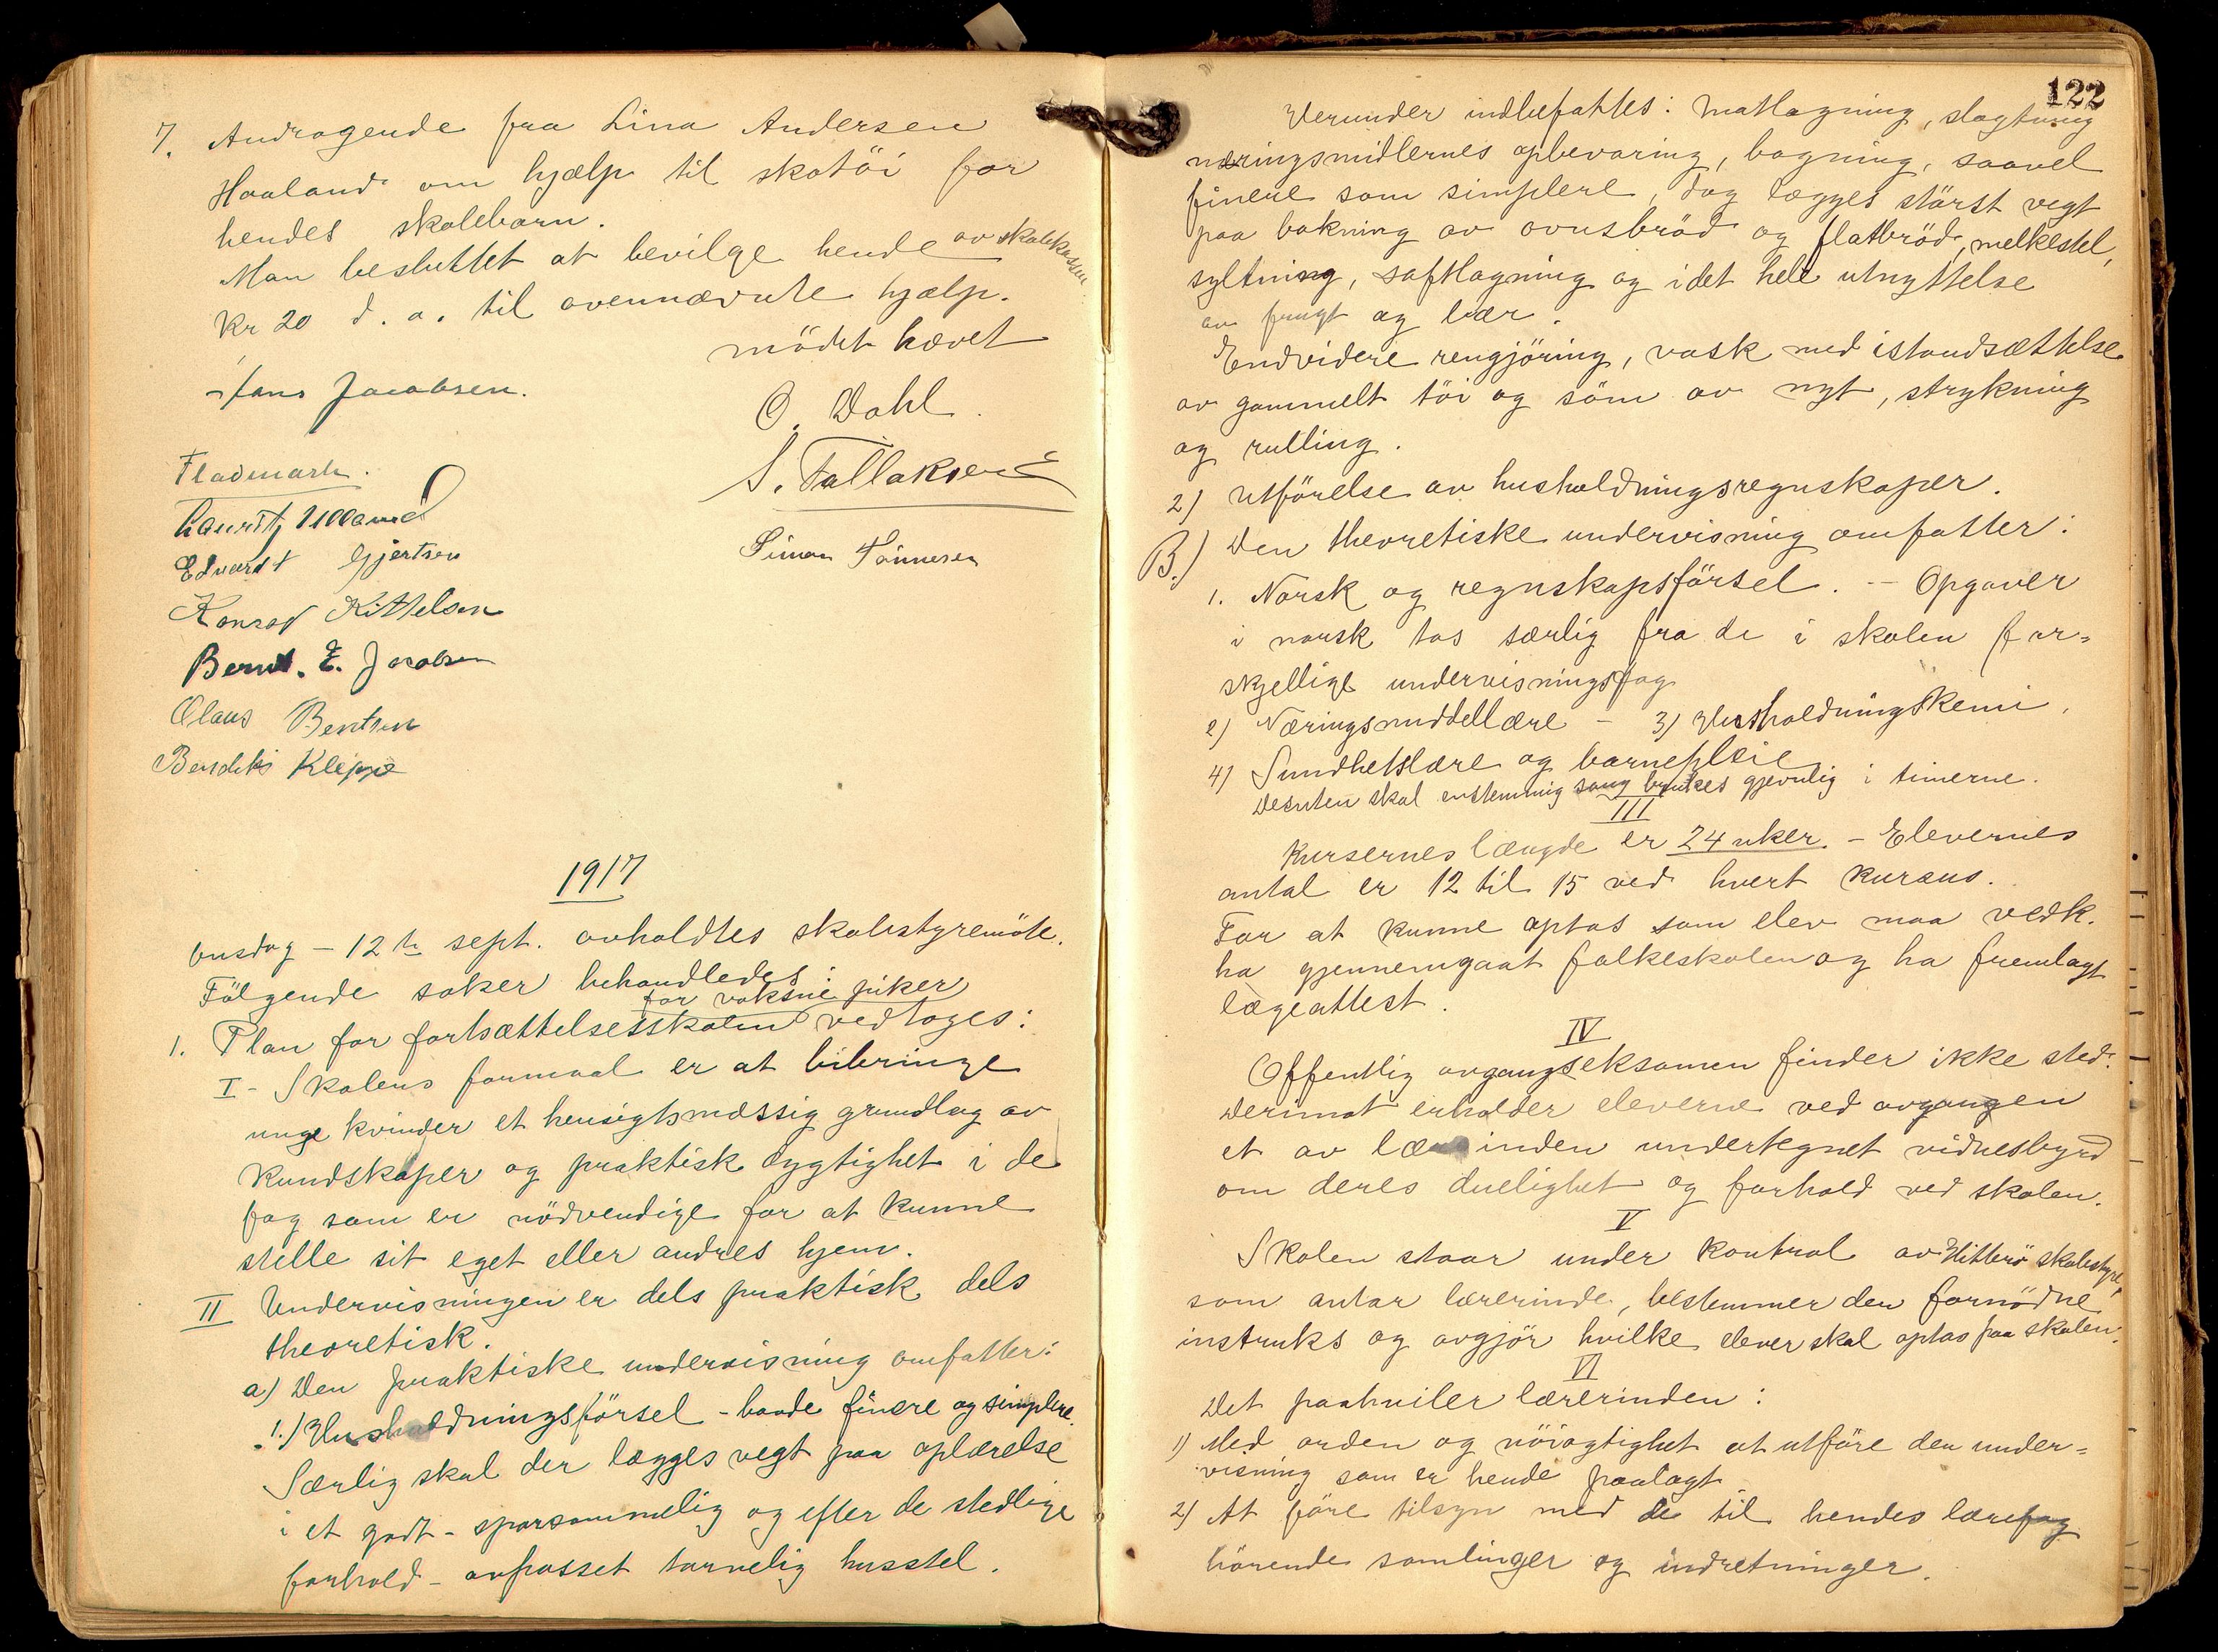 7. Andragende fra Lina Andersen
Haaland om hjælp til skotöi for
hendes skolebarn.
Man besluttet at bevilge hende av skolekassen
Kr 20 d. a. til ovennævnte hjælp.
mödet hævet
Hans Jacobsen.
O. Dahl.
Fladmark.
S. Tallaksen
Lauritz Ulland
Edvardt Gjertsen
Simon Tönnesen
Konrad Kittelsen
Bernt. E. Jacobsen
Olaus Bentsen
Bendiks Kleppe
1917
Onsdag - 12te sept. avholdtes skolestyremöte.
Fölgende saker behandledes:
for voksne piker
1. Plan for fortsættelsesskolen vedtoges:
I - Skolens formaal er at bibringe
unge kvinder et hensigtsmæssig grundlag av
kundskaper og praktisk dygtighet i de
fag som er nödvendige for at kunne
stelle sit eget eller andres hjem.
II Undervisningen er dels praktisk dels
theoretisk.
a) Den praktiske undervisning omfatter:
1.) Husholdningsförsel - baade finere og simplere.
Særlig skal der lægges vegt paa oplærelse
i et godt - sparsommelig og efter de stedlige
forhold - avpasset tarvelig husstel.
122
Herunder indbefattes: Matlagning, slagtning
næringsmidlernes opbevaring, bagning, saavel
finere som simplere, dog lægges störst vegt
paa bakning av ovnsbröd og flatbröd, melkestel,
syltning, saftlagning og i det hele utnyttelse
av frugt og bær.
Endvidere rengjöring, vask med istandsættelse
av gammelt töi og söm av nyt, strykning
og rulling.
2) Utförelse av husholdningsregnskaper.
B.) Den theoretiske undervisning omfatter:
1. Norsk og regnskapsförsel. - Opgaver
i norsk tas særlig fra de i skolen for-
skjellige undervisningsfag
2) Næringsmiddellære - 3) Husholdningskemi.
4) Sundhetslære og barnepleie
Desuten skal enstemmig sang brukes gjevnlig i timerne.
III
Kursernes længde er 24 uker. - Elevernes
antal er 12 til 15 ved hvert kursus.
For at kunne optas som elev maa vedk.
ha gjennemgaat folkeskolen og ha fremlagt
lægeattest.
IV
Offentlig avgangseksamen finder ikke sted.
Derimot erholder eleverne ved avgangen
et av lærerinden undertegnet vidnesbyrd
om deres duelighet og forhold ved skolen.
V
Skolen staar under kontrol av Hitterö skolestyre,
som antar lærerinde, bestemmer den fornödne
instruks og avgjör hvilke elever skal optas paa skolen.
VI
Det paahviler lærerinden:
1) Med orden og nöiagtighet at utföre den under-
visning som er hende paalagt
2) At före tilsyn med de til hendes lærefag
hörende samlinger og indretninger.